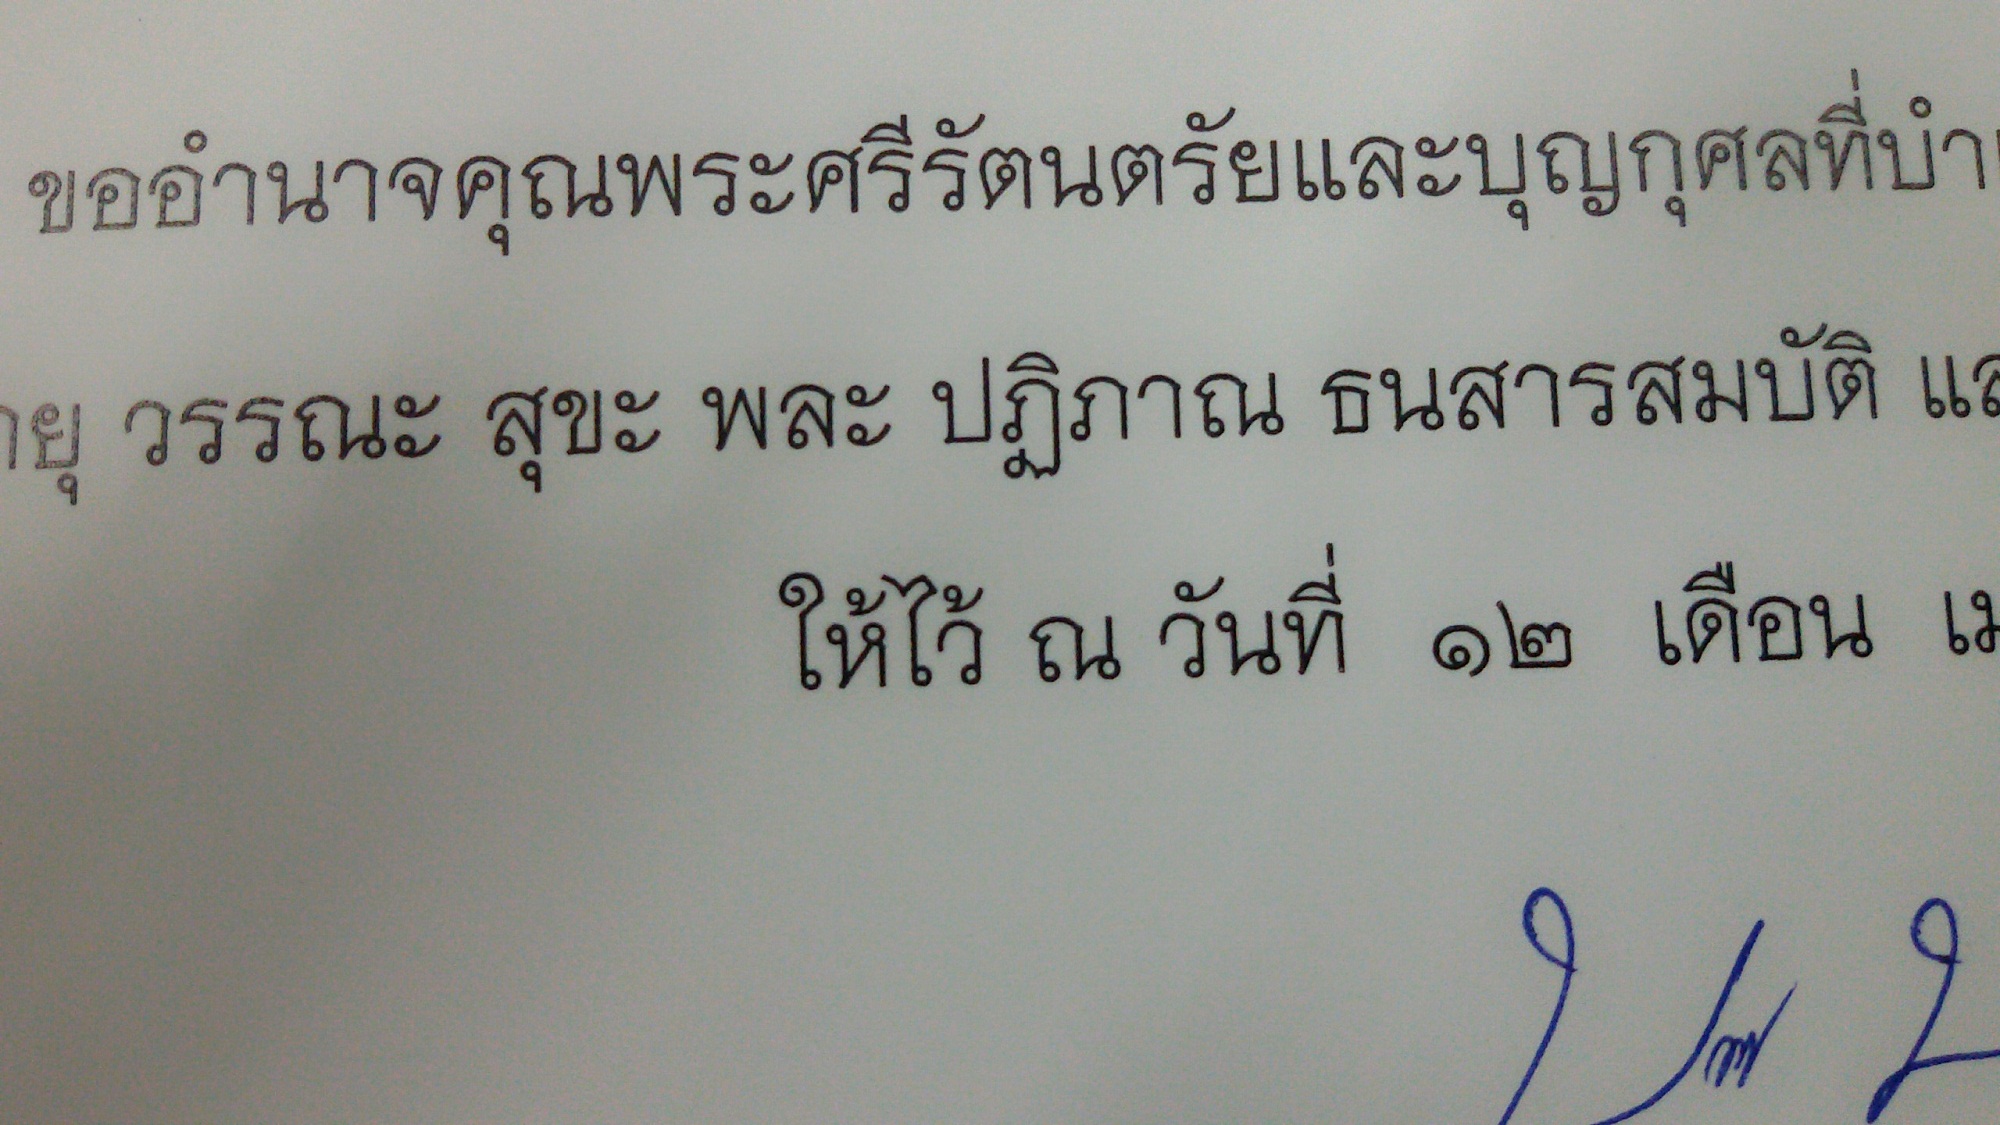 ขออำนาจคุณพระศรีรัตนตรัยและบุญกุศลที่บำ
ายุ วรรณะ สุขะ พละ ปฏิภาณ ธนสารสมบัติ แล
ให้ไว้ ณ วันที่ ๑๒ เดือน เม